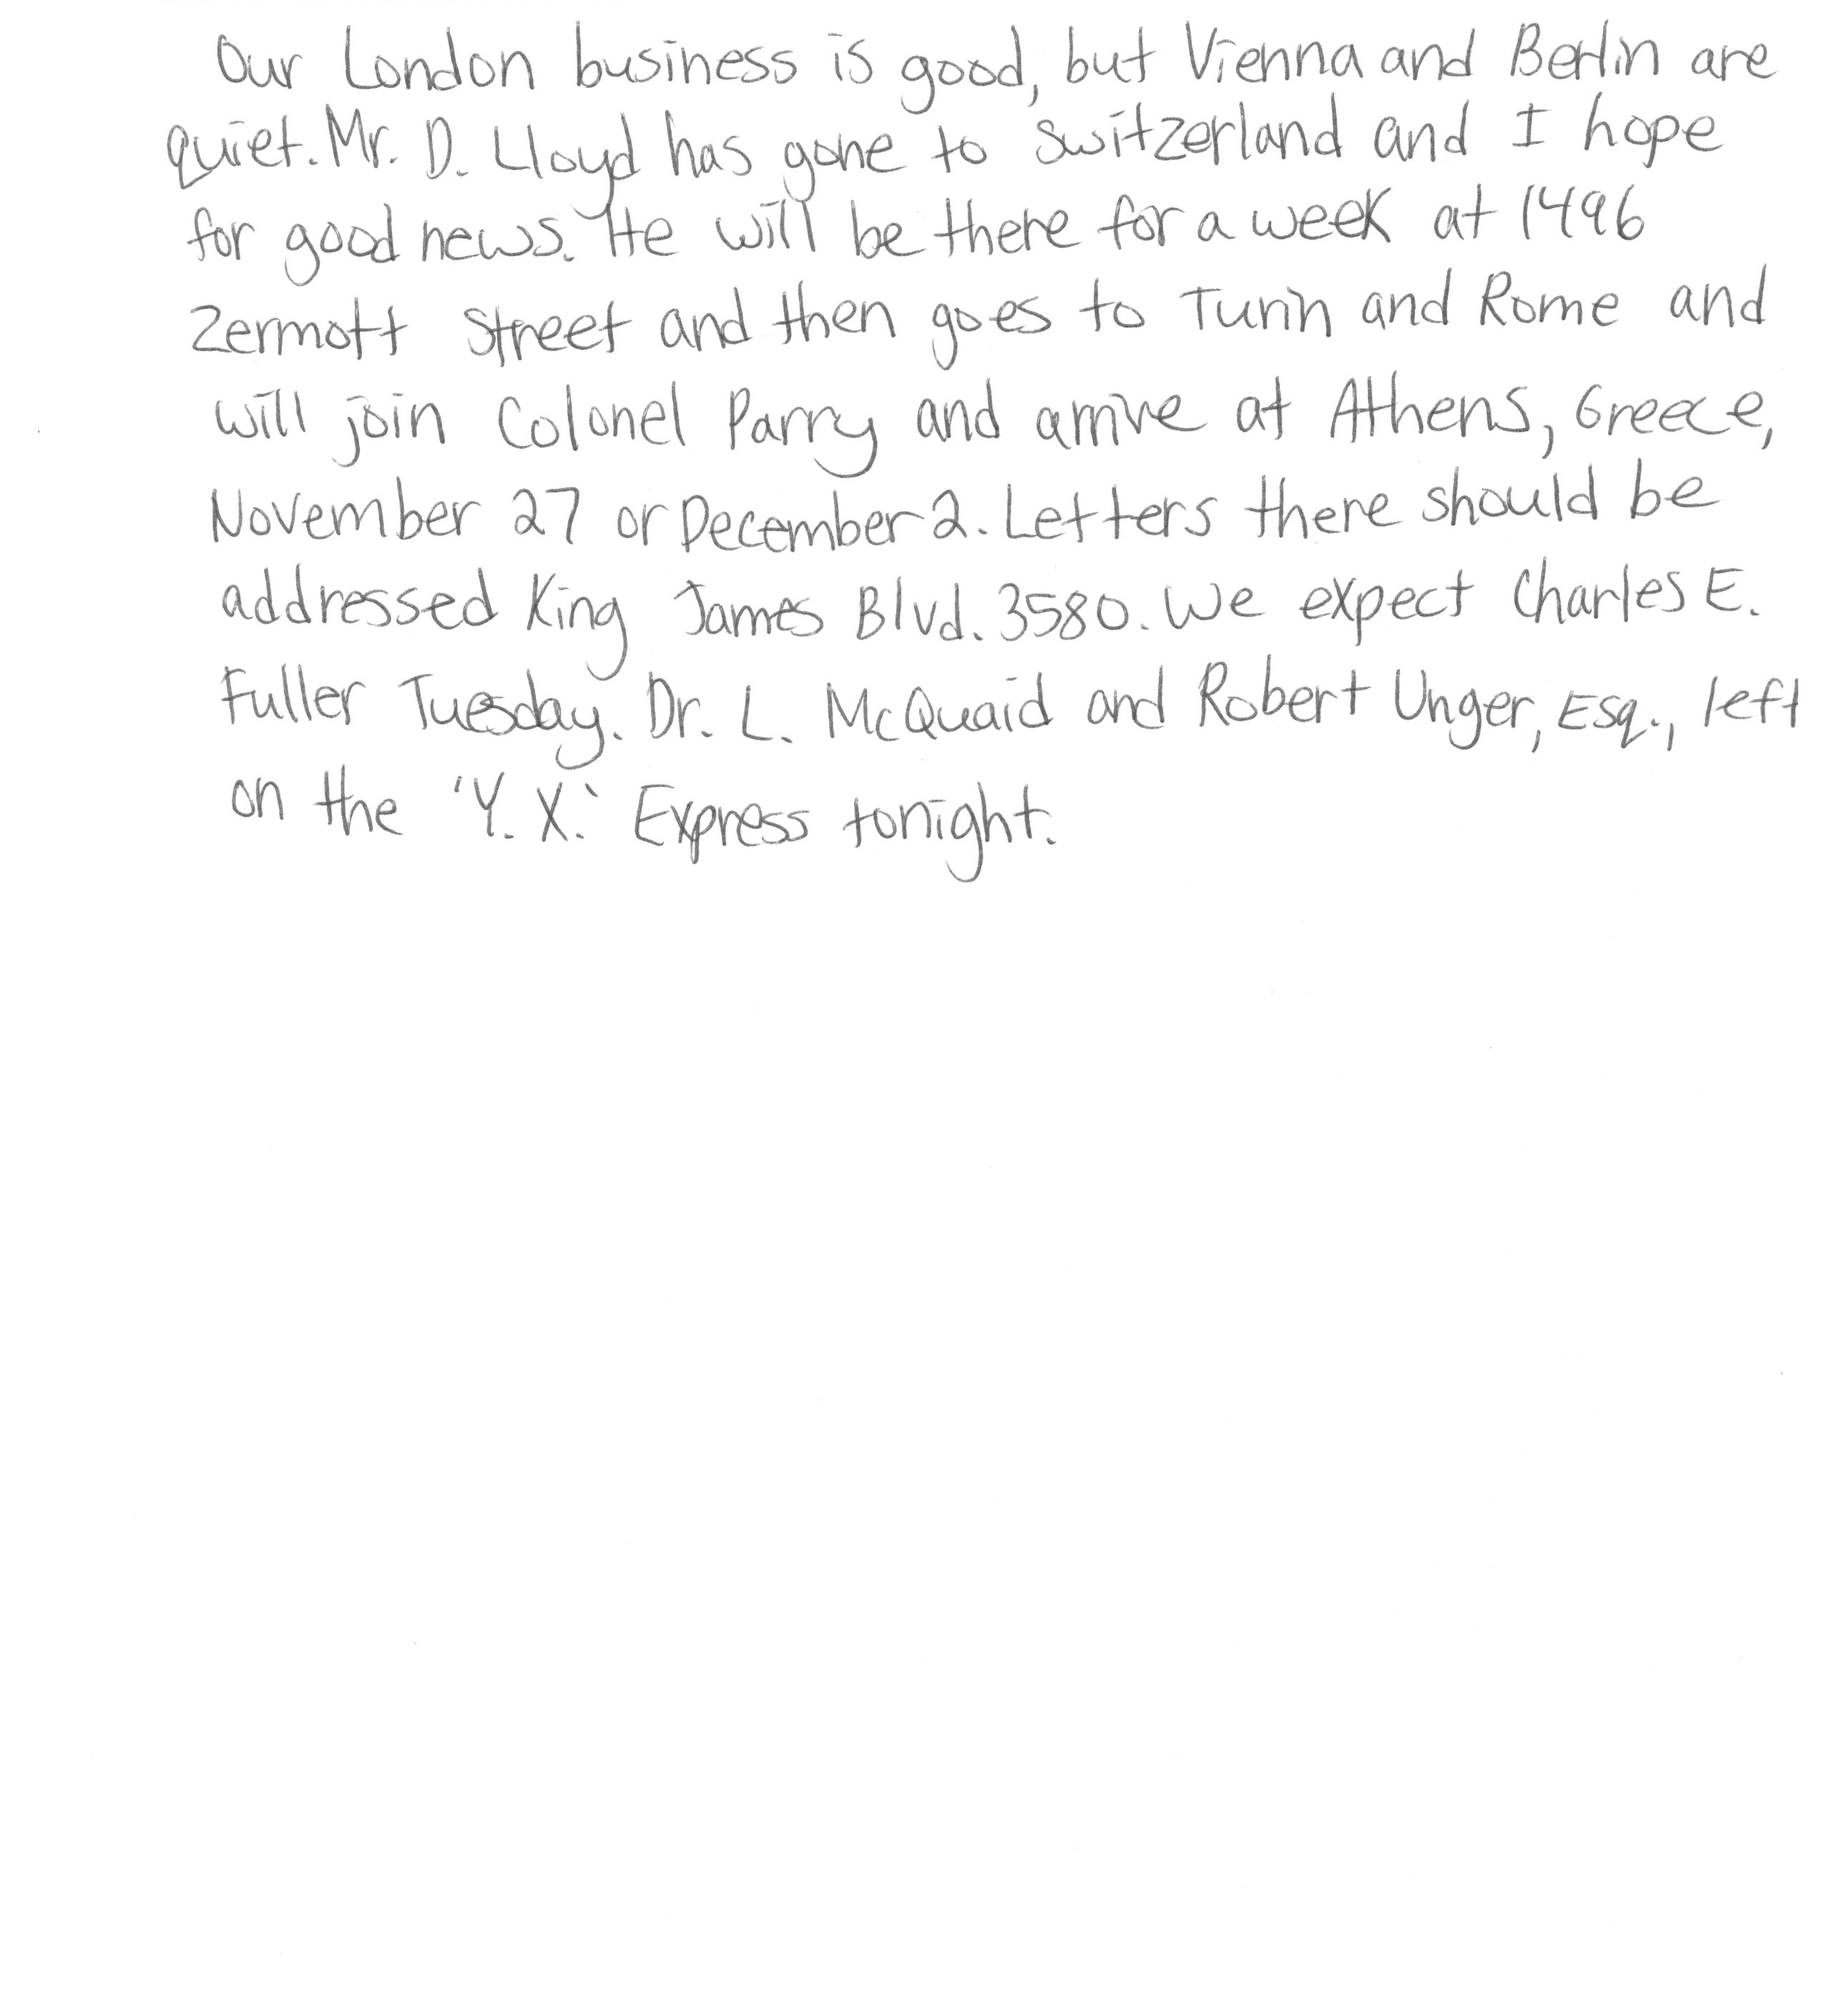 Our London business is good, but Vienna and Berlin are
quiet. Mr. D. Lloyd has gone to Switzerland and I hope
for good news. He will be there for a week at 1496
Zermott Street and then goes to Turin and Rome and
will join Colonel Parry and arrive at Athens, Greece,
November 27 or December 2. Letters there should be
addressed King James Blvd. 3580. We expect Charles E.
Fuller Tuesday. Dr. L. McQuaid and Robert Unger, Esq., left
on the 'Y. X.' Express tonight.